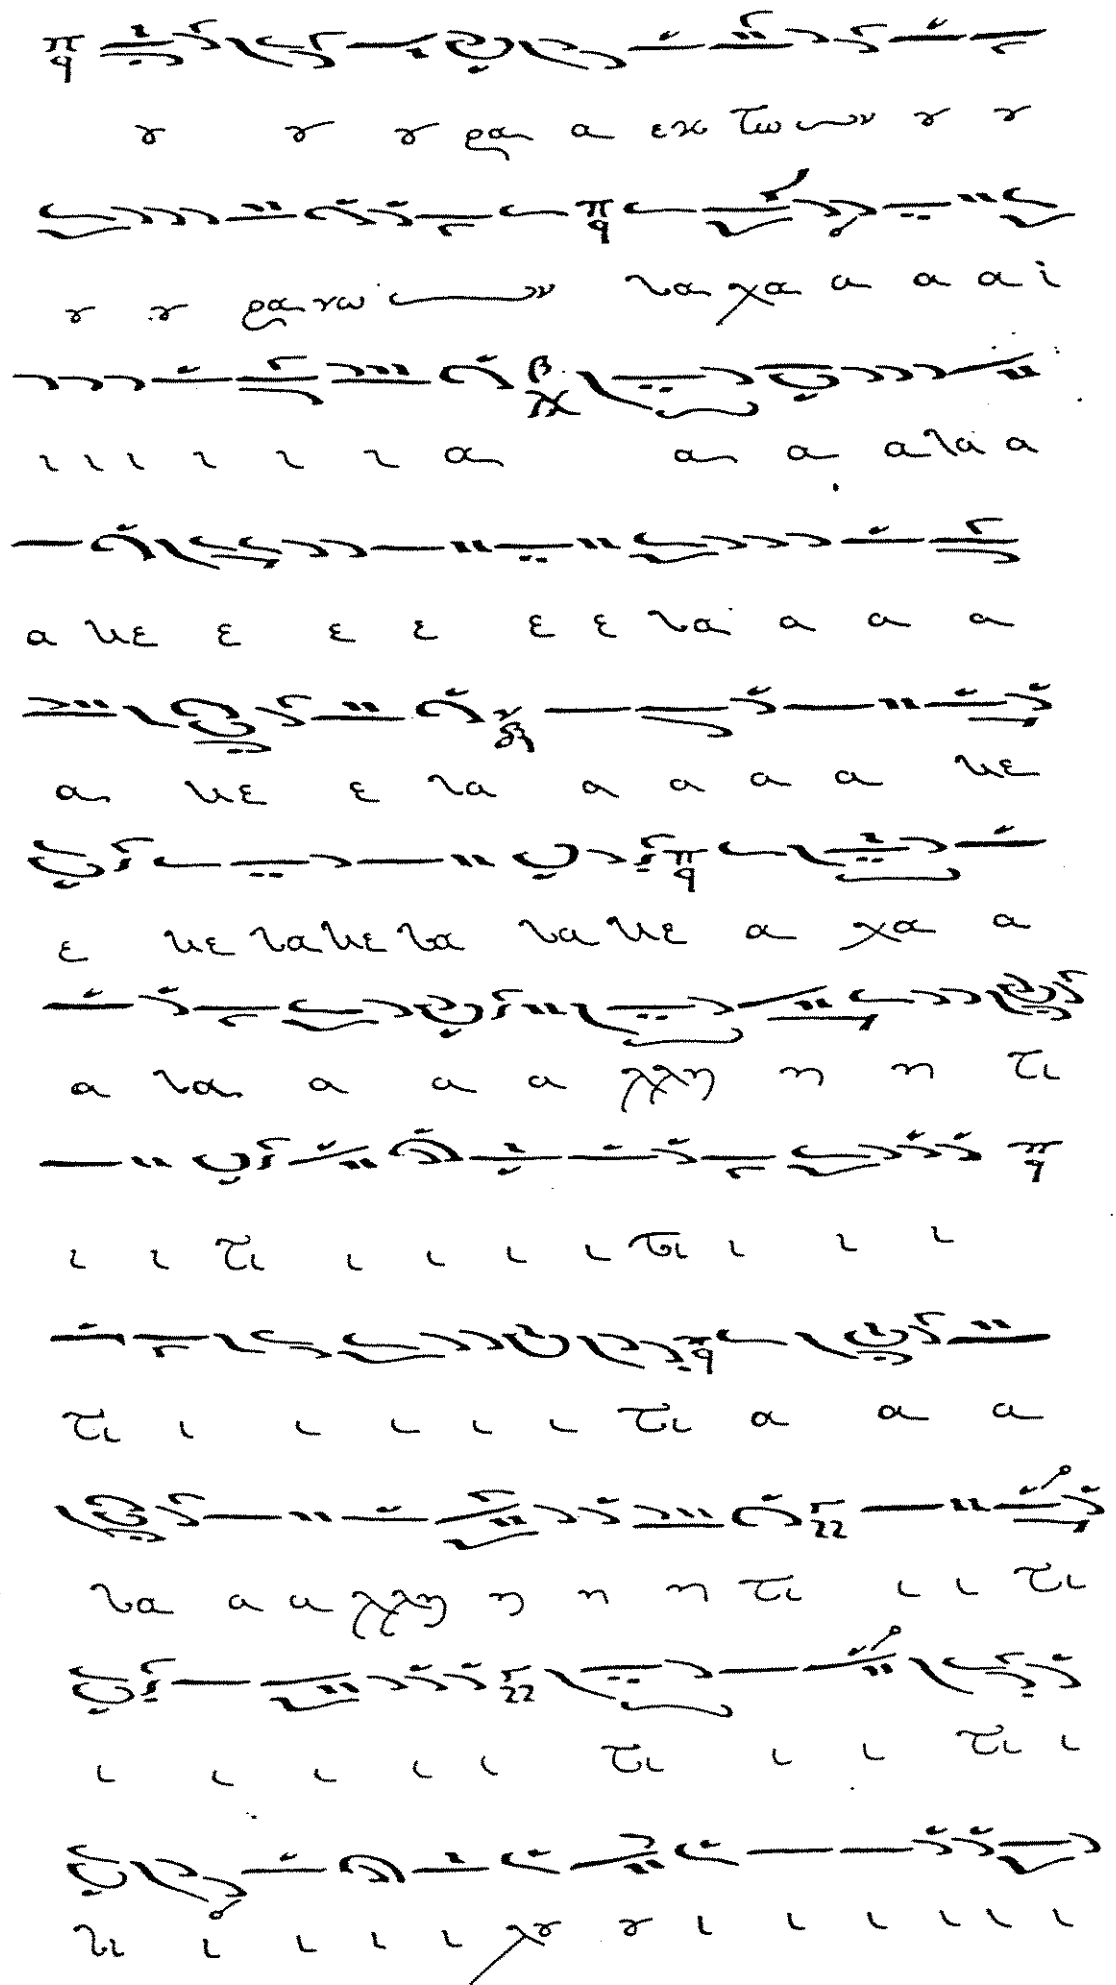 ȣ ȣ ȣ ρα α εκ των ȣ ȣ
ȣ ȣ ρα νων λα χα α α α ι
ι ι ι ι ι ι α α α α λα α
α νε ε ε ε ε ε λα α α α
α νε ε λα α α α α νε
ε νε λα νε λα λα νε α χα α
α λα α α α λλη η η τι
ι ι τι ι ι ι ι τι ι ι ι
τι ι ι ι ι ι τι α α α
λα α α λλη η η η τι ι ι τι
ι ι ι ι ι τι ι ι τι ι
νι ι ι ι ι λȣ ȣ ι ι ι ι ι ι